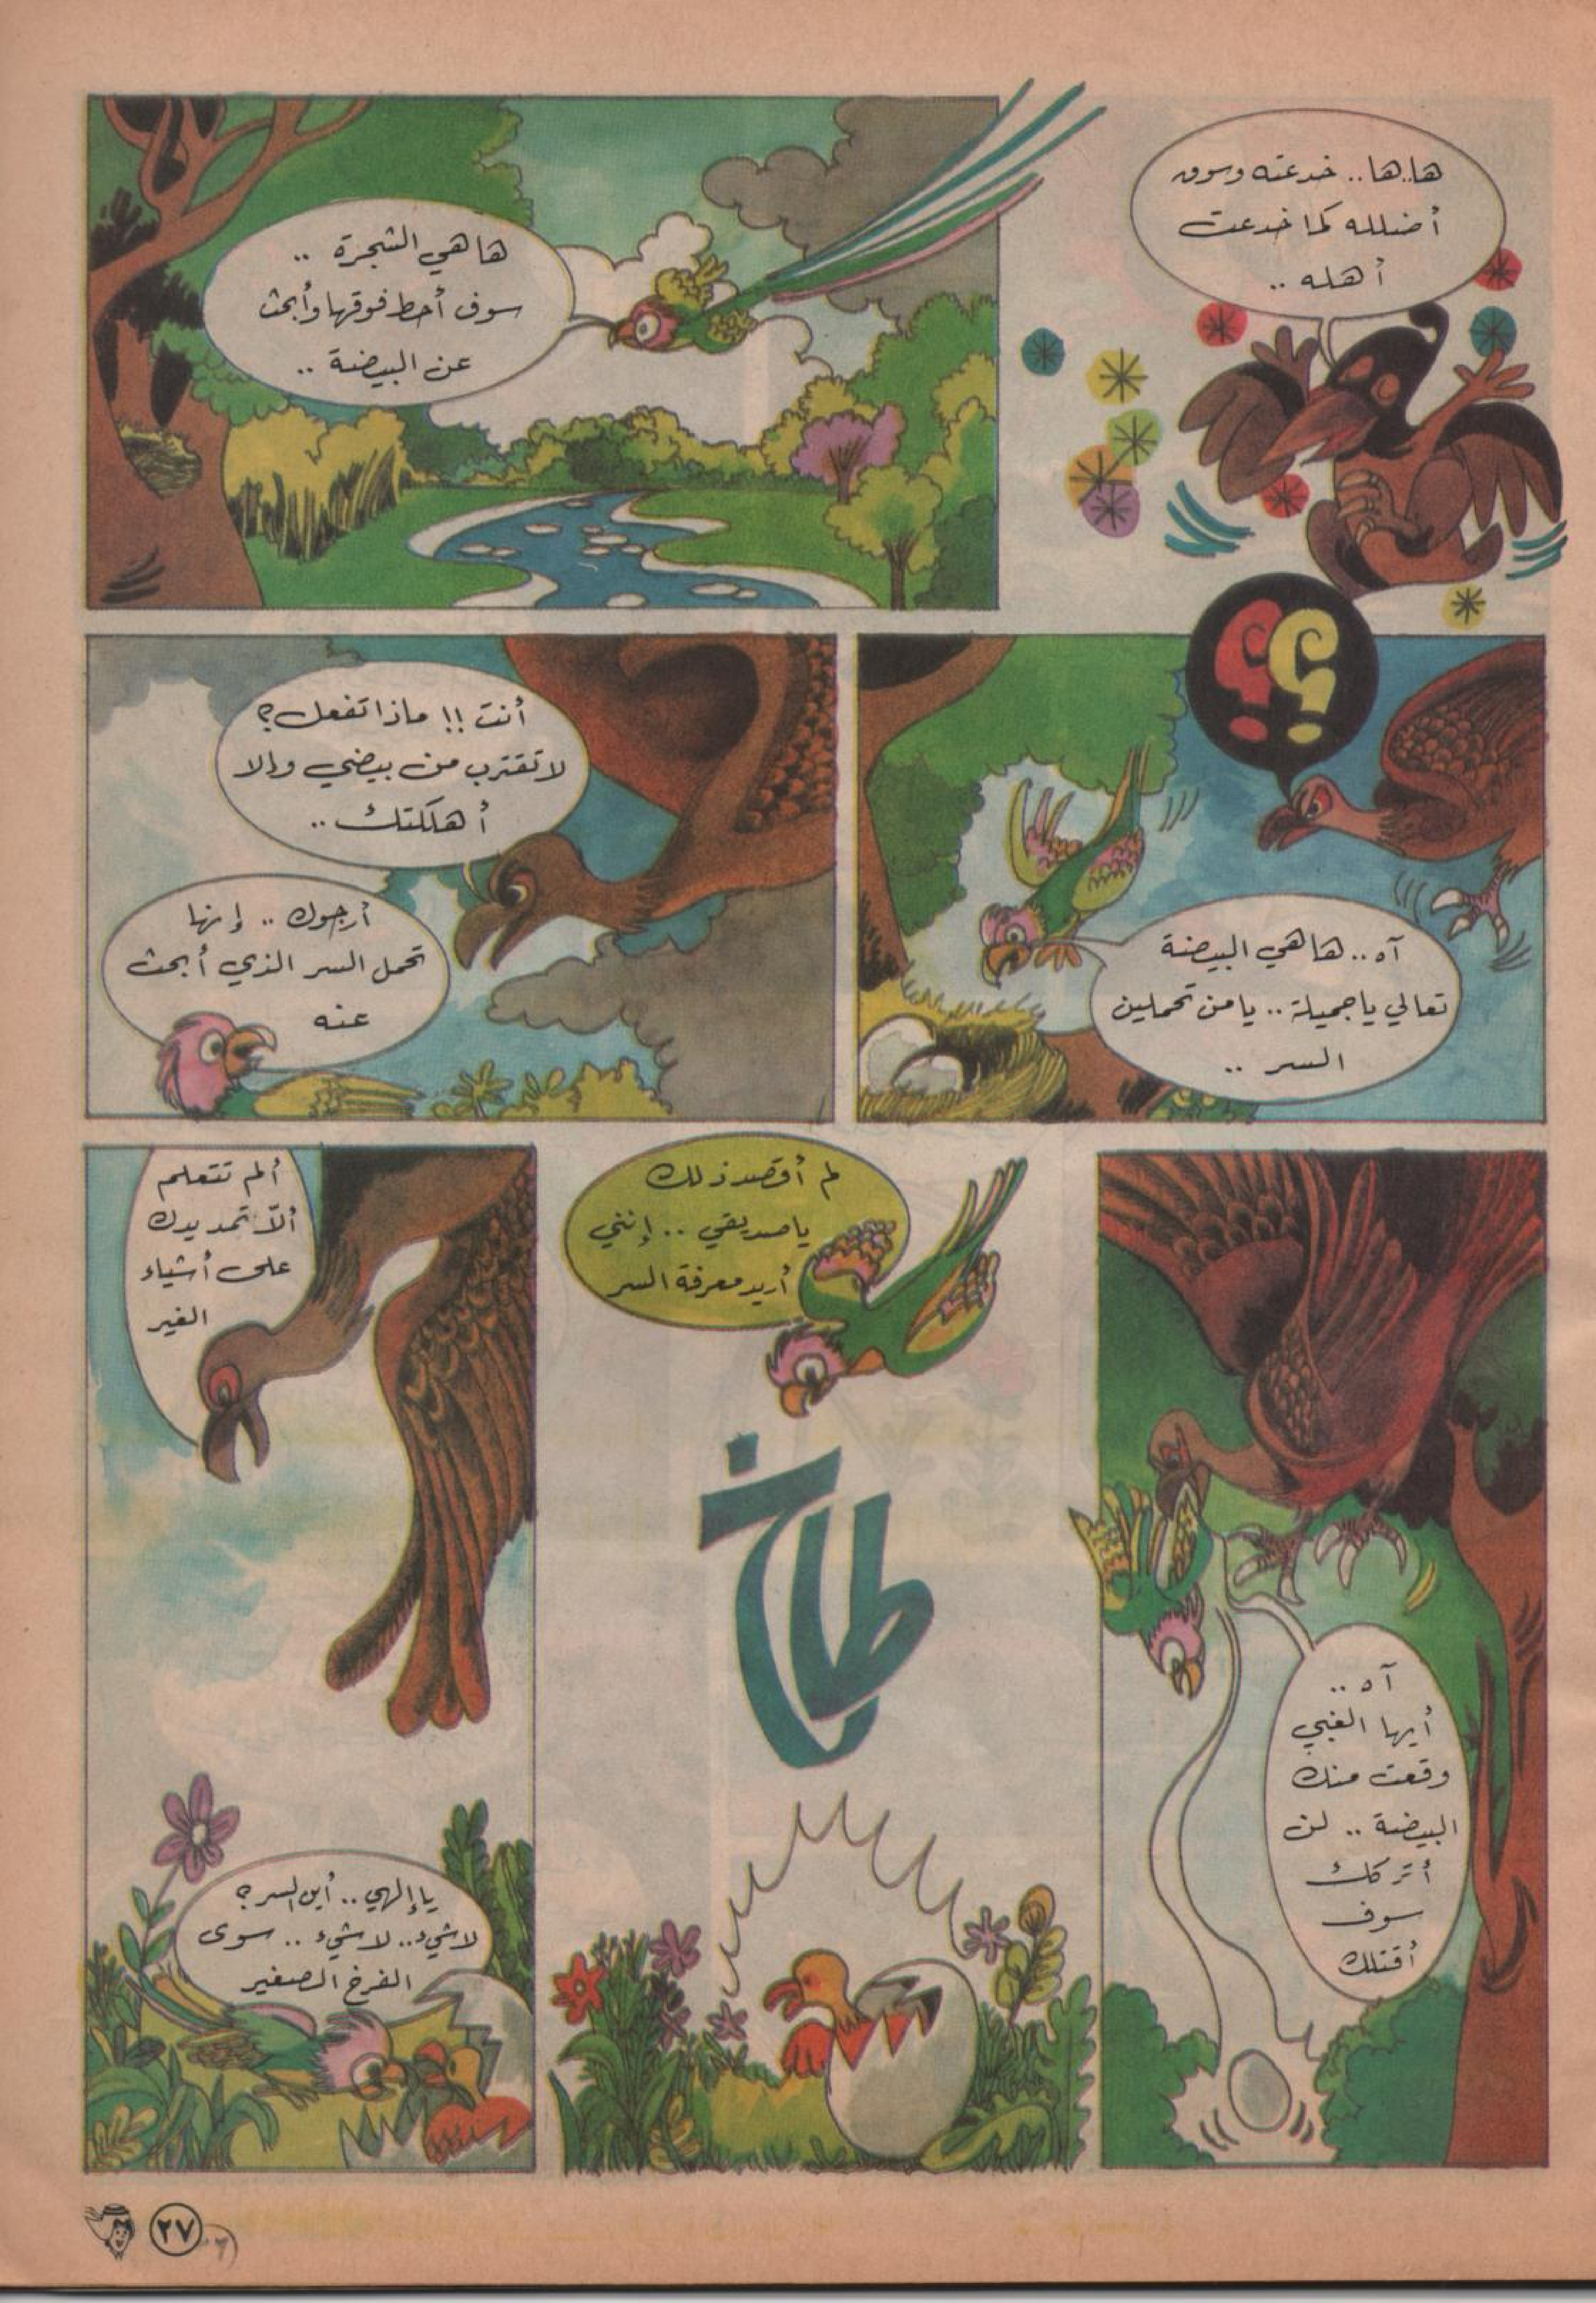 ها.ها.. خدعته وسوف
أضلله كما خدعت
أهله ..
ها هي الشجرة ..
سوف أحط فوقها وأبحث
عن البيضة ..
؟؟
آه .. ها هي البيضة
تعالي يا جميلة .. يا من تحملين
السر ..
أنت !! ماذا تفعل ؟
لا تقترب من بيضي وإلا
أهلكتك ..
أرجوك .. إنها
تحمل السر الذي أبحث
عنه
آه ..
أيها الغبي
وقعت منك
البيضة .. لن
أتركك
سوف
أقتلك
لم أقصد ذلك
يا صديقي .. إنني
أريد معرفة السر
طاخ
ألم تتعلم
ألاّ تمد يدك
على أشياء
الغير
يا إلهي .. أين السر ؟
لا شيء .. لا شيء .. سوى
الفرخ الصغير
٢٧